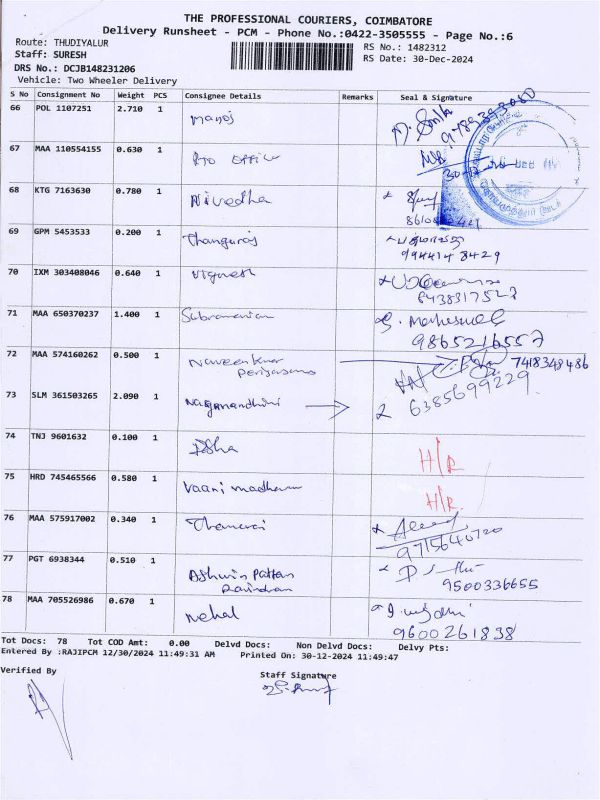 THE PROFESSIONAL COURIERS, COIMBATORE
Delivery Runsheet - PCM - Phone No.:0422-3505555 - Page No.:6
Route: THUDIYALUR
Staff: SURESH
DRS No.: DCJB148231206
Vehicle: Two Wheeler Delivery
RS No.: 1482312
RS Date: 30-Dec-2024
S No Consignment No Weight PCS Consignee Details Remarks Seal & Signature
66 POL 1107251 2.710 1 Manoj 9789393080
67 MAA 110554155 0.630 1 RTO office
68 KTG 7163630 0.780 1 Nivedha
69 GPM 5453533 0.200 1 Thangaraj 994414 8429
70 IXM 303408046 0.640 1 Vignesh 8438317527
71 MAA 650370237 1.400 1 Subramanian S. Maheswari 9865216557
72 MAA 574160262 0.500 1 Naveenkumar Periyasamy 7418348486
73 SLM 361503265 2.090 1 Naganandhini 6385699229
74 TNJ 9601632 0.100 1 Isha H/R
75 HRD 745465566 0.580 1 Vaani madhavan H/R
76 MAA 575917002 0.340 1 Thamarai 9715640720
77 PGT 6938344 0.510 1 Ashwin Pattan Ravindran 9500336655
78 MAA 705526986 0.670 1 Nehal 9600261838
Tot Docs: 78 Tot COD Amt: 0.00 Delvd Docs: Non Delvd Docs: Delvy Pts:
Entered By :RAJIPCM 12/30/2024 11:49:31 AM Printed On: 30-12-2024 11:49:47
Verified By
Staff Signature